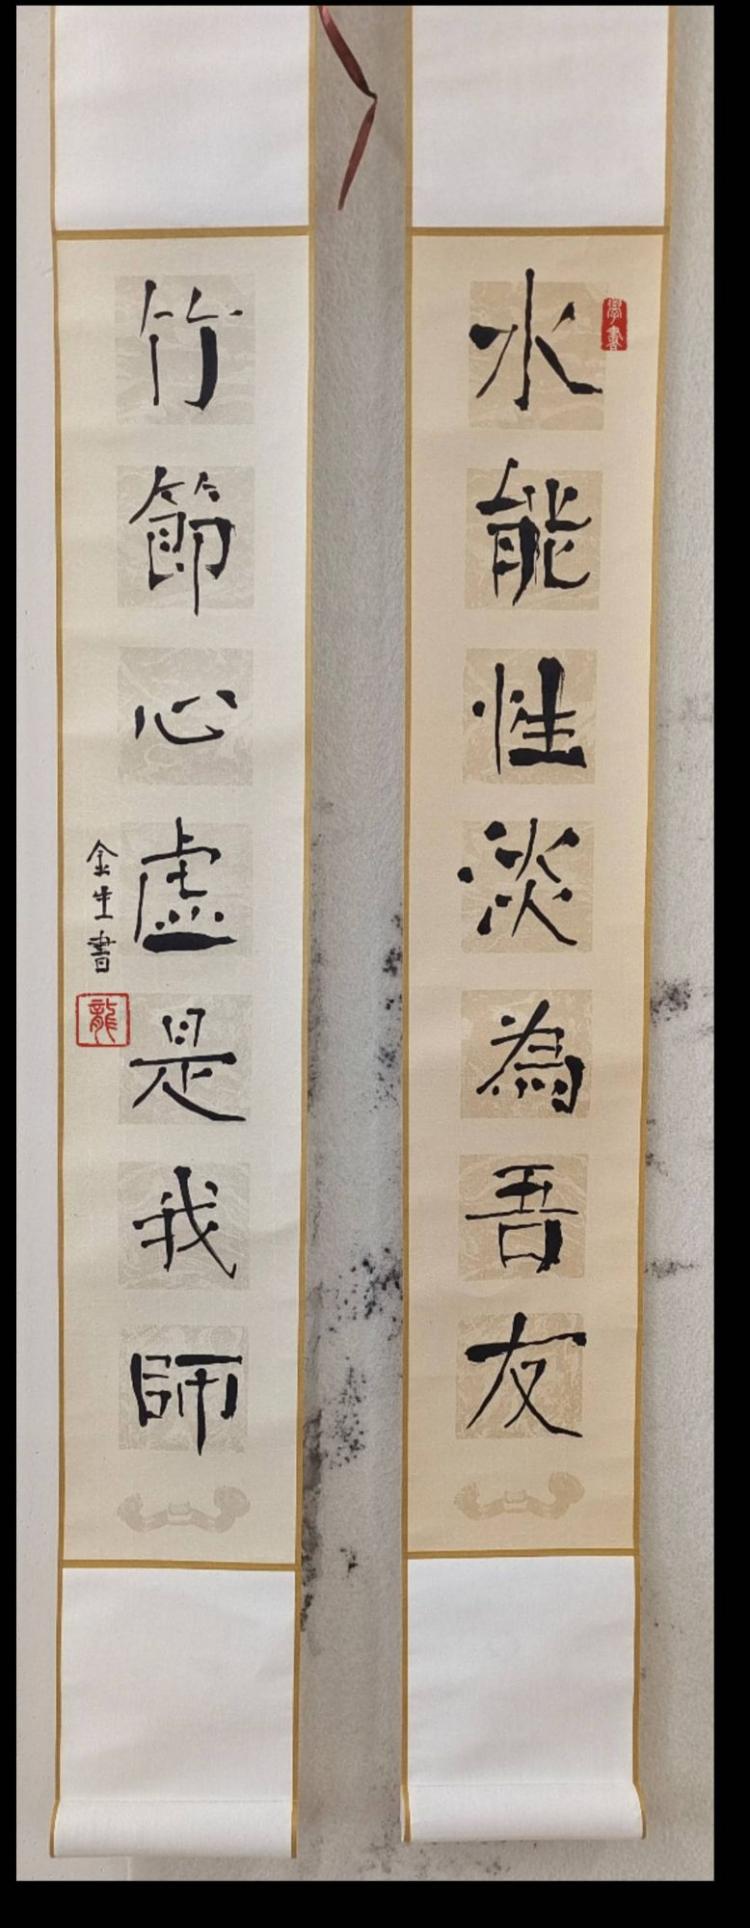 水能性淡為吾友
竹節心虛是我師
金生書
龍
學書